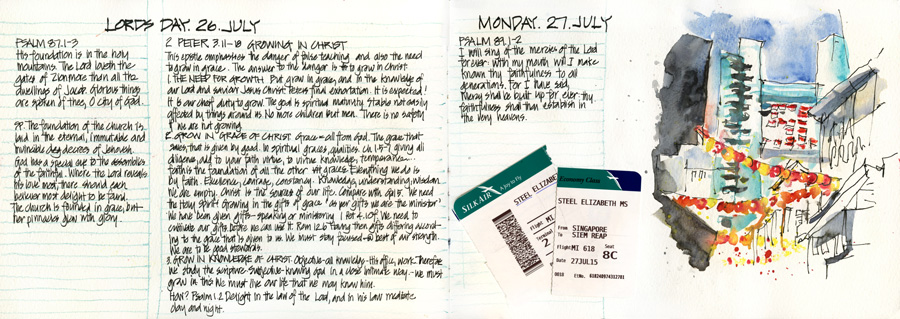 LORDS DAY. 26. JULY
PSALM 87.1-3
His foundation is in the holy
mountains. The Lord loveth the
gates of Zion more than all the
dwellings of Jacob. Glorious things
are spoken of thee, O city of God.
SP. The foundation of the church is
laid in the eternal, immutable and
invincible decrees of Jehovah.
God has a special eye to the assemblies
of the faithful. Where the Lord reveals
his love most, there should each
believer most delight to be found.
The church is founded in grace, but
her pinnacles glow with glory.
2 PETER 3.11-18 GROWING IN CHRIST
This epistle emphasises the danger of false teaching and also the need
to grow in grace. The answer to the danger is to grow in Christ
1. THE NEED FOR GROWTH. But grow in grace, and in the knowledge of
our Lord and saviour Jesus Christ. Peters final exhortation. It is expected!
It is our chief duty to grow. The goal is spiritual maturity. Stable not easily
affected by things around us. No more children but men. There is no safety
if we are not growing.
2. GROW IN GRACE OF CHRIST. Grace = all from God. The grace that
saves, that is given by God. In spiritual graces, qualities. Ch 1.5-7 giving all
diligence, add to your faith virtue, to virtue knowledge, temperance...
Faith is the foundation of all the other graces. Everything we do is
by faith. Excellence, courage, constancy. Knowledge, understanding, wisdom.
We are empty. Christ is the source of our life. Compare with Gal 5. We need
the Holy Spirit. Growing in the gifts of grace "as per gifts we are the minister"
We have been given gifts - speaking or ministering 1 Pet 4.10ff. We need to
cultivate our gifts before we can use it. Rom 12.6 Having then gifts differing accord-
ing to the grace that is given to us. We must stay focussed - to best of our strength.
We are to be good stewards.
3. GROW IN KNOWLEDGE OF CHRIST. Objective - all knowledge - His office, work. Therefore
we study the scripture. Subjective - knowing God in a close intimate way - we must
grow in this. We must live our life that we may know him.
How? Psalm 1.2 Delight in the law of the Lord, and in his law meditate
day and night.
MONDAY. 27. JULY
PSALM 89.1-2
I will sing of the mercies of the Lord
forever: with my mouth will I make
known thy faithfulness to all
generations. For I have said,
Mercy shall be built up for ever: thy
faithfulness shalt thou establish in
the very heavens.
SILKAIR
A Joy to Fly
STEEL ELIZABE
Flight MI
Terminal
2
Economy Class
STEEL ELIZABETH MS
From SINGAPORE
To SIEM REAP
Flight MI 618
Seat
8C
Date 27JUL15